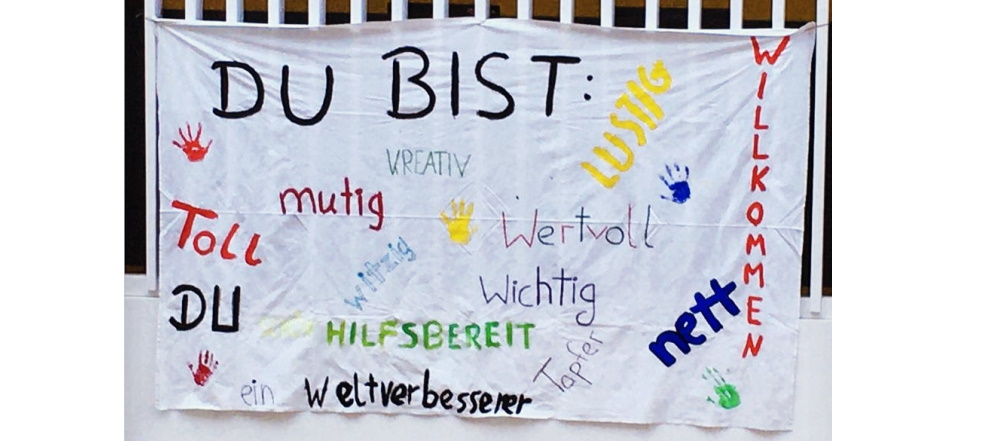 DU BIST:
LUSTIG
WILLKOMMEN
KREATIV
mutig
Wertvoll
Toll
witzig
Wichtig
DU
nett
HILFSBEREIT
Tapfer
ein Weltverbesserer